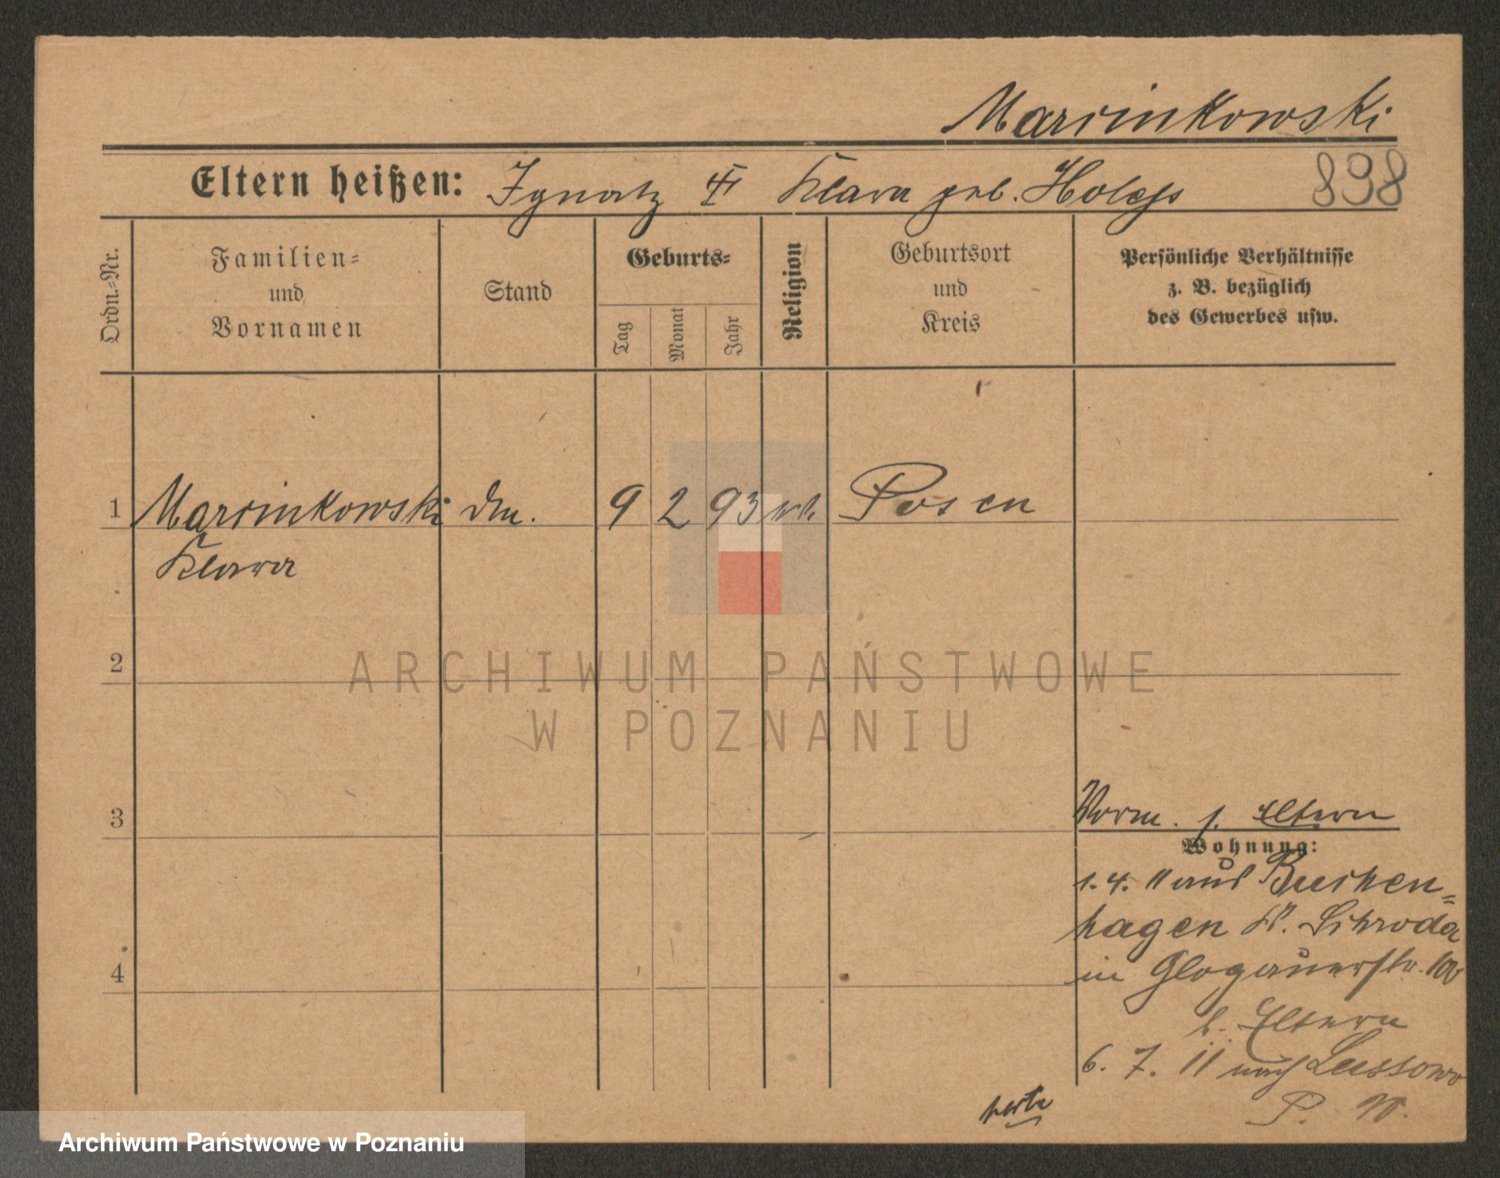 Marcinkowski
Eltern heißen: Ignatz Klara geb. 898
Ordn.-Nr.
Familien- und Vornamen
Stand
Geburts-
Tag
Monat
Jahr
Religion
Geburtsort und Kreis
Persönliche Verhältnisse
z. B. bezüglich
des Gewerbes usw.
1 Marcinkowski 9 2 93 kth. Posen
Klara
2
3
Vorm. s. Eltern
Wohnung:
1. 4. 11 aus Buchen-
hagen Kr. Schroda
4
in Glogauerstr.
b. Eltern
6. 7. 11 nach Lussowo
P. W.
ARCHIWUM PAŃSTWOWE
W POZNANIU
Archiwum Państwowe w Poznaniu